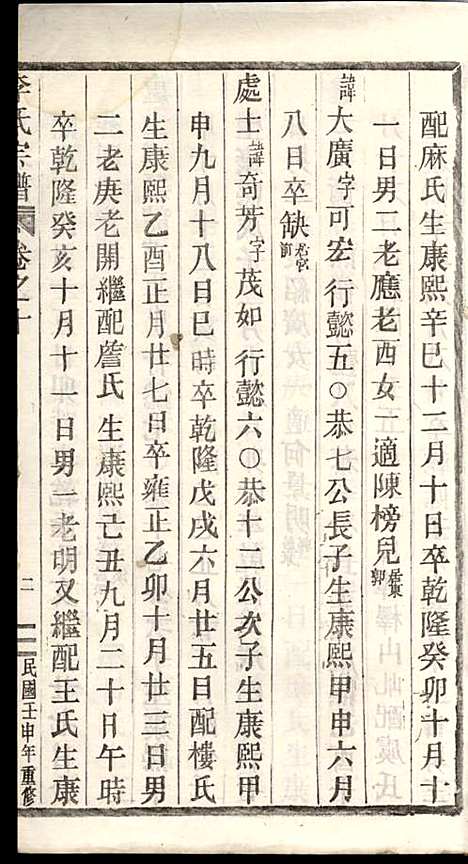 配麻氏生康熙辛巳十二月十日卒乾隆癸卯十月十
一日男二老應老西女一適陳榜兒居東郭
諱大廣字可宏行懿五○恭七公長子生康熙甲申六月
八日卒缺
處士諱奇芳字茂如行懿六○恭十二公次子生康熙甲
申九月十八日巳時卒乾隆戊戌六月廿五日配樓氏
生康熙乙酉正月廿七日卒雍正乙卯十月廿三日男
二老庚老開繼配詹氏生康熙己丑九月二十日午時
卒乾隆癸亥十月十一日男一老明又繼配王氏生康
李氏宗譜
卷之十
二
民國壬申年重修